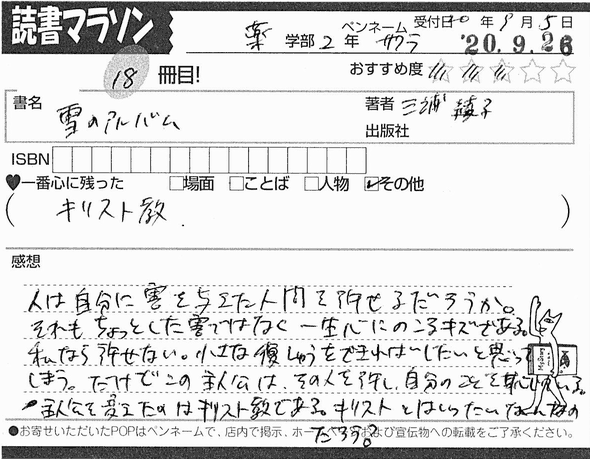 読書マラソン
薬 学部 2 年 ペンネーム サクラ 受付日 20 年 9 月 5 日
'20.9.26
18 冊目! おすすめ度
書名 雪のアルバム 著者 三浦綾子
出版社
ISBN
♥一番心に残った □場面 □ことば □人物 ☑その他
( キリスト教 )
感想
人は自分に害を与えた人間を許せるだろうか。
それもちょっとした害ではなく一生心にのこるキズである。
私なら許せない。小さな復しゅうをできればしたいと思って
しまう。だけどこの主人公は、その人を許し、自分のことを恥じている。
主人公を変えたのはキリスト教である。キリストとはいったいなんなの
だろう?
●お寄せいただいたPOPはペンネームで、店内で掲示、ホームおよび宣伝物への転載をご了承ください。